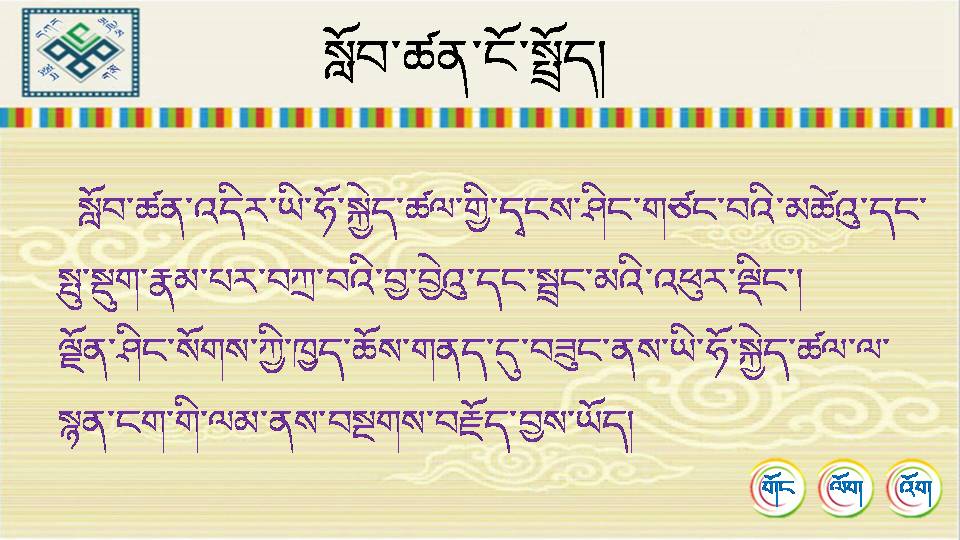 སློབ་ཚན་ངོ་སྤྲོད།
སློབ་ཚན་འདིར་ཡི་ཧོ་སྐྱེད་ཚལ་གྱི་དྭངས་ཤིང་གཙང་བའི་མཚེའུ་དང་
སྤུ་སྡུག་རྣམ་པར་བཀྲ་བའི་བྱ་བྱེའུ་དང་སྦྲང་མའི་འཕུར་ལྡིང་།
ལྗོན་ཤིང་སོགས་ཀྱི་ཁྱད་ཆོས་གནད་དུ་བཟུང་ནས་ཡི་ཧོ་སྐྱེད་ཚལ་ལ་
སྙན་ངག་གི་ལམ་ནས་བསྔགས་བརྗོད་བྱས་ཡོད།
གོང་ ལོག འོག